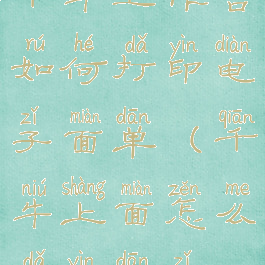 rú hé dǎ yìn diàn
如何打印电
zǐ miàn dān qiān
子面单（千
niú shàng miàn zěn me
牛上面怎么
dǎ yìn dān zǐ